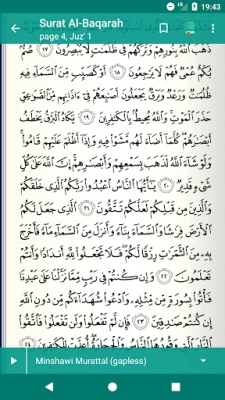 19:43
Surat Al-Baqarah
page 4, Juz' 1
ذَهَبَ ٱللَّهُ بِنُورِهِمْ وَتَرَكَهُمْ فِى ظُلُمَٰتٍ لَّا يُبْصِرُونَ ١٧
صُمٌّۢ بُكْمٌ عُمْىٌ فَهُمْ لَا يَرْجِعُونَ ١٨ أَوْ كَصَيِّبٍ مِّنَ ٱلسَّمَآءِ فِيهِ
ظُلُمَٰتٌ وَرَعْدٌ وَبَرْقٌ يَجْعَلُونَ أَصَٰبِعَهُمْ فِىٓ ءَاذَانِهِم مِّنَ ٱلصَّوَٰعِقِ
حَذَرَ ٱلْمَوْتِ وَٱللَّهُ مُحِيطٌۢ بِٱلْكَٰفِرِينَ ١٩ يَكَادُ ٱلْبَرْقُ يَخْطَفُ
أَبْصَٰرَهُمْ كُلَّمَآ أَضَآءَ لَهُم مَّشَوْا۟ فِيهِ وَإِذَآ أَظْلَمَ عَلَيْهِمْ قَامُوا۟
وَلَوْ شَآءَ ٱللَّهُ لَذَهَبَ بِسَمْعِهِمْ وَأَبْصَٰرِهِمْ إِنَّ ٱللَّهَ عَلَىٰ كُلِّ
شَىْءٍ قَدِيرٌ ٢٠ يَٰٓأَيُّهَا ٱلنَّاسُ ٱعْبُدُوا۟ رَبَّكُمُ ٱلَّذِى خَلَقَكُمْ
وَٱلَّذِينَ مِن قَبْلِكُمْ لَعَلَّكُمْ تَتَّقُونَ ٢١ ٱلَّذِى جَعَلَ لَكُمُ
ٱلْأَرْضَ فِرَٰشًا وَٱلسَّمَآءَ بِنَآءً وَأَنزَلَ مِنَ ٱلسَّمَآءِ مَآءً فَأَخْرَجَ
بِهِۦ مِنَ ٱلثَّمَرَٰتِ رِزْقًا لَّكُمْ فَلَا تَجْعَلُوا۟ لِلَّهِ أَندَادًا وَأَنتُمْ
تَعْلَمُونَ ٢٢ وَإِن كُنتُمْ فِى رَيْبٍ مِّمَّا نَزَّلْنَا عَلَىٰ عَبْدِنَا
فَأْتُوا۟ بِسُورَةٍ مِّن مِّثْلِهِۦ وَٱدْعُوا۟ شُهَدَآءَكُم مِّن دُونِ ٱللَّهِ
إِن كُنتُمْ صَٰدِقِينَ ٢٣ فَإِن لَّمْ تَفْعَلُوا۟ وَلَن تَفْعَلُوا۟ فَٱتَّقُوا۟
ٱلنَّارَ ٱلَّتِى وَقُودُهَا ٱلنَّاسُ وَٱلْحِجَارَةُ أُعِدَّتْ لِلْكَٰفِرِينَ
Minshawi Murattal (gapless)